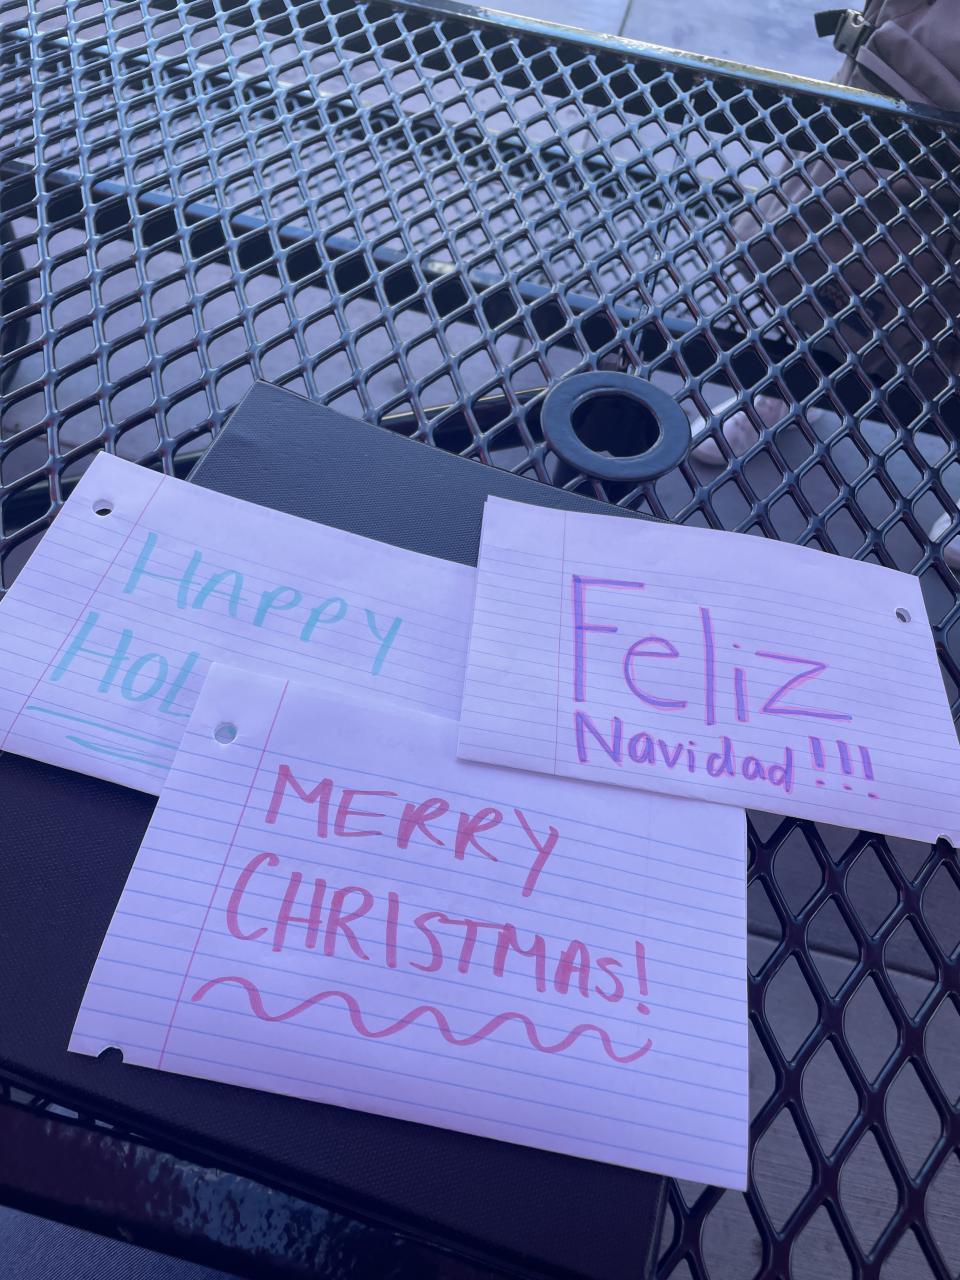 HAPPY
HOL
Feliz
Navidad!!!
MERRY
CHRISTMAS!